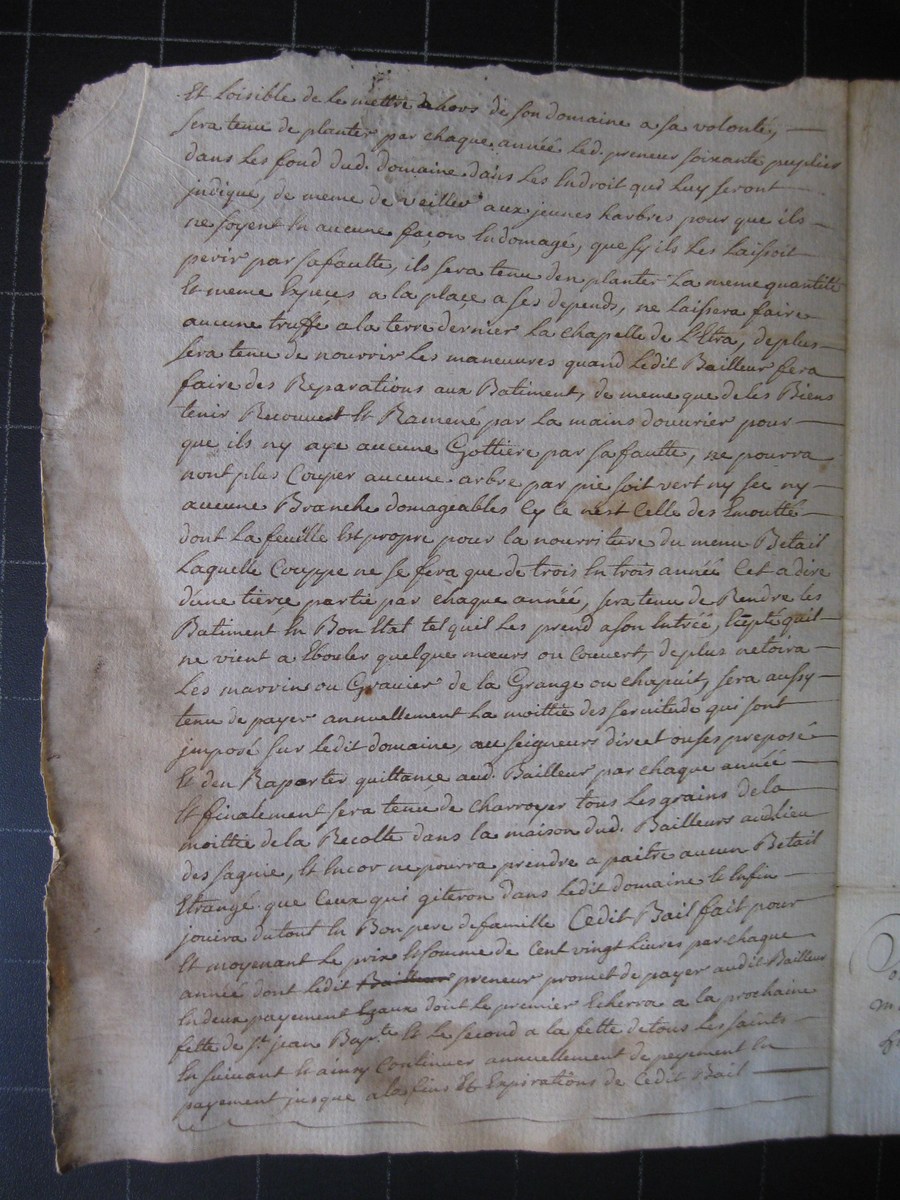 Et loisible de le mettre dehors de son domaine a sa volonté,
sera tenu de planter par chaque année led. preneur soixante puplier
dans les fond dud. domaine dans les Endroit qui luy seront
jndiqué, de meme de veiller aux jeunes harbres pour que ils
ne soyent En aucune façon Endomagé, que sy ils les laissoit
perir par sa faulte, ils sera tenu den planter la meme quantité
Et meme Especes a la place a ses depends, ne laissera faire
aucune truffe a la terre dernier la chapelle de L'Etra, de plus
sera tenu de nourrir les maneuvres quand Ledit Bailleur fera
faire des Reparations aux Batiment, de meme que de les Biens
tenir Recouvert Et Ramené par la mains douvrier pour
que ils ny aye aucune Gottiere par sa faulte, ne pourra
nont plus Couper aucune arbre par pie soit vert ny sec ny
aucune Branche domageables Cy ce nest Celle des Emoutté
dont la feuille Est propre pour la nourriture du menu Betail
Laquelle Couppe ne se fera que de trois En trois année Cet a dire
d'une tierce partie par chaque année, sera tenu de Rendre les
Batiment En Bon Etat tel quil les prend a son Entrée, Eẋepté quil
ne vient a Ebouler quelque mœurs ou Couvert, de plus netoira
les marrins ou Gravier de la Grange ou chapuit, sera aussy
tenu de payer annuellement la moittie des servitude qui sont
jmposé sur ledit domaine, au seigneurs direct ou ses preposé
Et den Raporter quittance aud. Bailleur par chaque année
Et finalement sera tenu de charroyer tous les grains de la
moittié de la Recolte dans la maison dud. Bailleurs au lieu
des sagnie, Et Encor ne pourra prendre a paitre aucun Betail
Etrangé que Ceux qui giteron dans ledit domaine Et Enfin
jouira du tout En Bon pere de famille Cedit Bail fait pour
Et moyenant le prix Et somme de Cent vingt livres par chaque
année dont ledit Bailleur preneur promet de payer audit Bailleur
En deux payement Egaux dont le premier Echerra a la prochaine
fette de st. jean Bapte. Et le second a la fette de tous les saints
En suivant Et ainsy Continuer annuellement de payement En
payement jusque a la fins Et Expirations de Cedit Bail